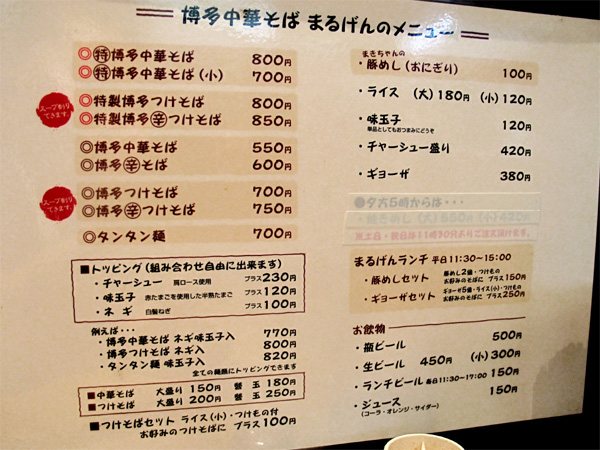 博多中華そば まるげんのメニュー
◎特博多中華そば 800円
◎特博多中華そば(小) 700円
スープ割り
できます。
◎特製博多つけそば 800円
◎特製博多辛つけそば 850円
◎博多中華そば 550円
◎博多辛そば 600円
スープ割り
できます。
◎博多つけそば 700円
◎博多辛つけそば 750円
◎タンタン麺 700円
■トッピング(組み合わせ自由に出来ます)
・チャーシュー 肩ロース使用 プラス230円
・味玉子 赤たまごを使用した半熟たまご プラス120円
・ネギ 白髪ねぎ プラス100円
例えば・・・
・博多中華そば ネギ味玉子入 770円
・博多つけそば ネギ入 800円
・タンタン麺 味玉子入 820円
全ての麺類にトッピングできます
■中華そば 大盛り 150円 替玉 180円
■つけそば 大盛り 200円 替玉 250円
■つけそばセット ライス(小)・つけもの付
お好みのつけそばに プラス100円
まきちゃんの
・豚めし(おにぎり) 100円
・ライス (大)180円 (小)120円
・味玉子 120円
単品としてもおつまみにどうぞ
・チャーシュー盛り 420円
・ギョーザ 380円
●夕方5時からは・・・
・焼きめし(大)550円(小)420円
まるげんランチ 平日11:30~15:00
・豚めしセット 豚めし2個・つけもの
お好みのそばに プラス150円
・ギョーザセット ギョーザ5個・ライス(小)・つけもの
お好みのそばに プラス250円
お飲物
・瓶ビール 500円
・生ビール 450円 (小)300円
・ランチビール 毎日11:30~17:00 150円
・ジュース 150円
(コーラ・オレンジ・サイダー)